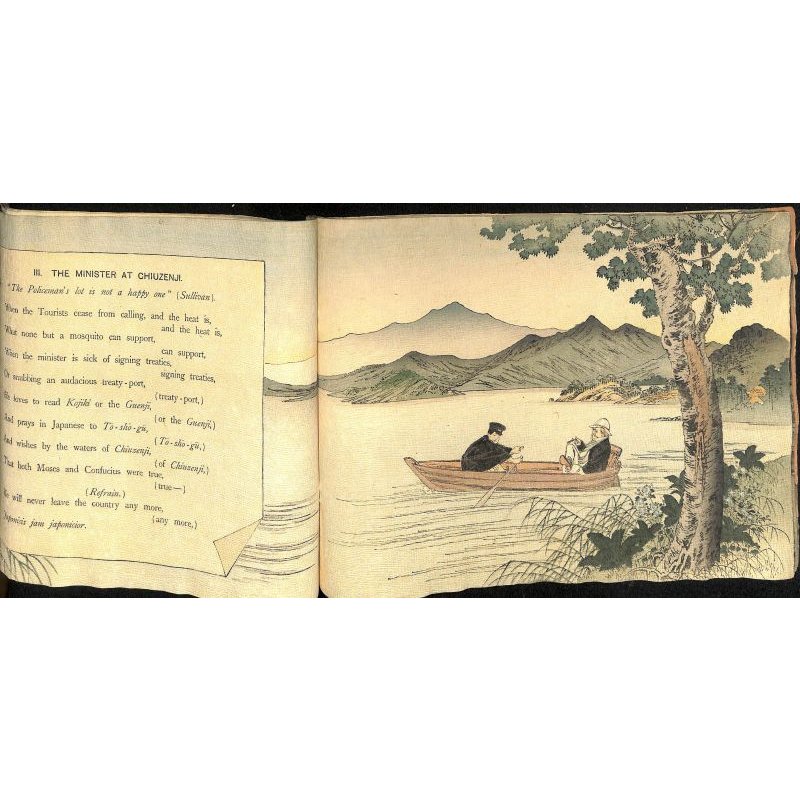 III. THE MINISTER AT CHIUZENJI.
"The Policeman's lot is not a happy one" (Sullivan).
When the Tourists cease from calling, and the heat is,
and the heat is,
What none but a mosquito can support,
can support,
When the minister is sick of signing treaties,
signing treaties,
Or snubbing an audacious treaty-port,
(treaty-port,)
He loves to read Kojiki or the Guenji,
(or the Guenji,)
And prays in Japanese to Tō-shō-gū,
(Tō-shō-gū,)
And wishes by the waters of Chiuzenji,
(of Chiuzenji,)
That both Moses and Confucius were true,
(true—)
(Refrain.)
We will never leave the country any more,
(any more,)
jam japonicior.